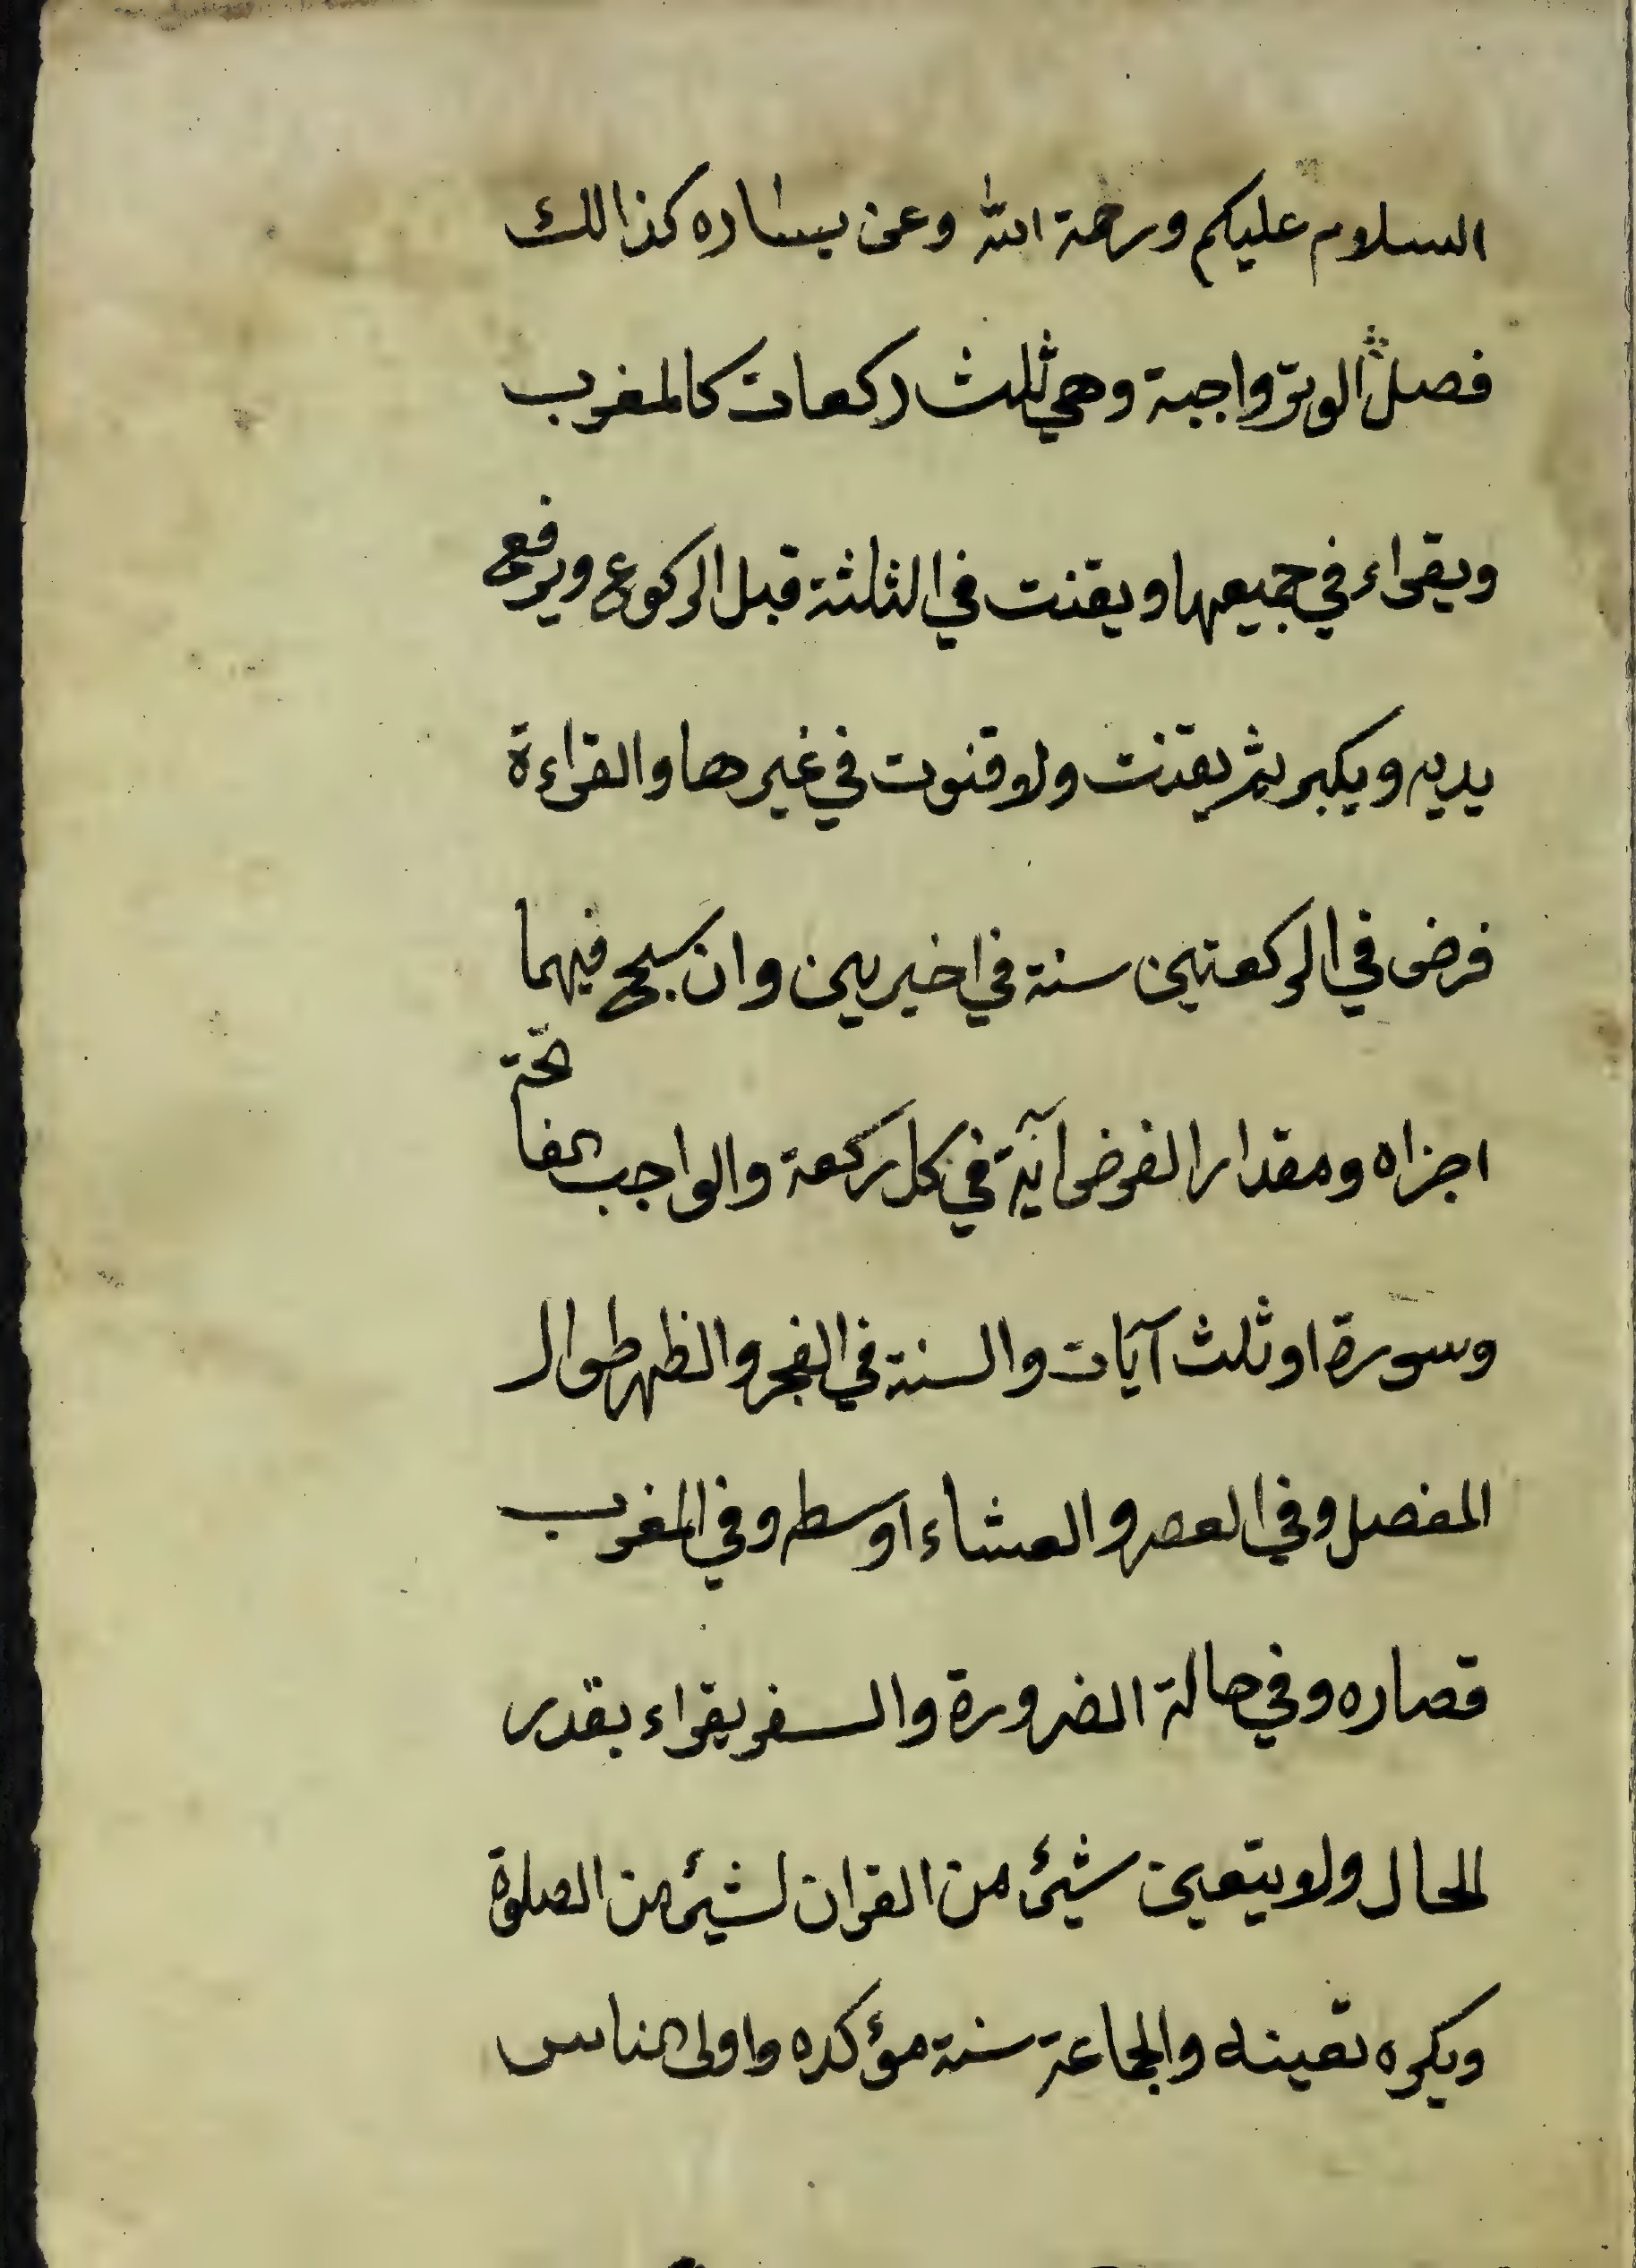 السلام عليكم ورحمة الله وعن يساره كذالك
فصل الوتر واجبة وهي ثلث ركعات كالمغرب
ويقراء في جميعها ويقنت في الثلثة قبل الركوع ويرفع
يديه ويكبر ثم يقنت ولا قنوت في غيرها والقراءة
فرض في الركعتين سنة في اخيريين وان سبح فيهما
اجزاه ومقدار الفرض آية في كل ركعة والواجب الفاتحة
وسورة او ثلث آيات والسنة في الفجر والظهر طوال
المفصل وفي العصر والعشاء اوسطه وفي المغرب
قصاره وفي حالة الضرورة والسفر يقراء بقدر
الحال ولا يتعين شيئ من القران لشيئ من الصلوة
ويكره تعينه والجماعة سنة مؤكده واولى الناس